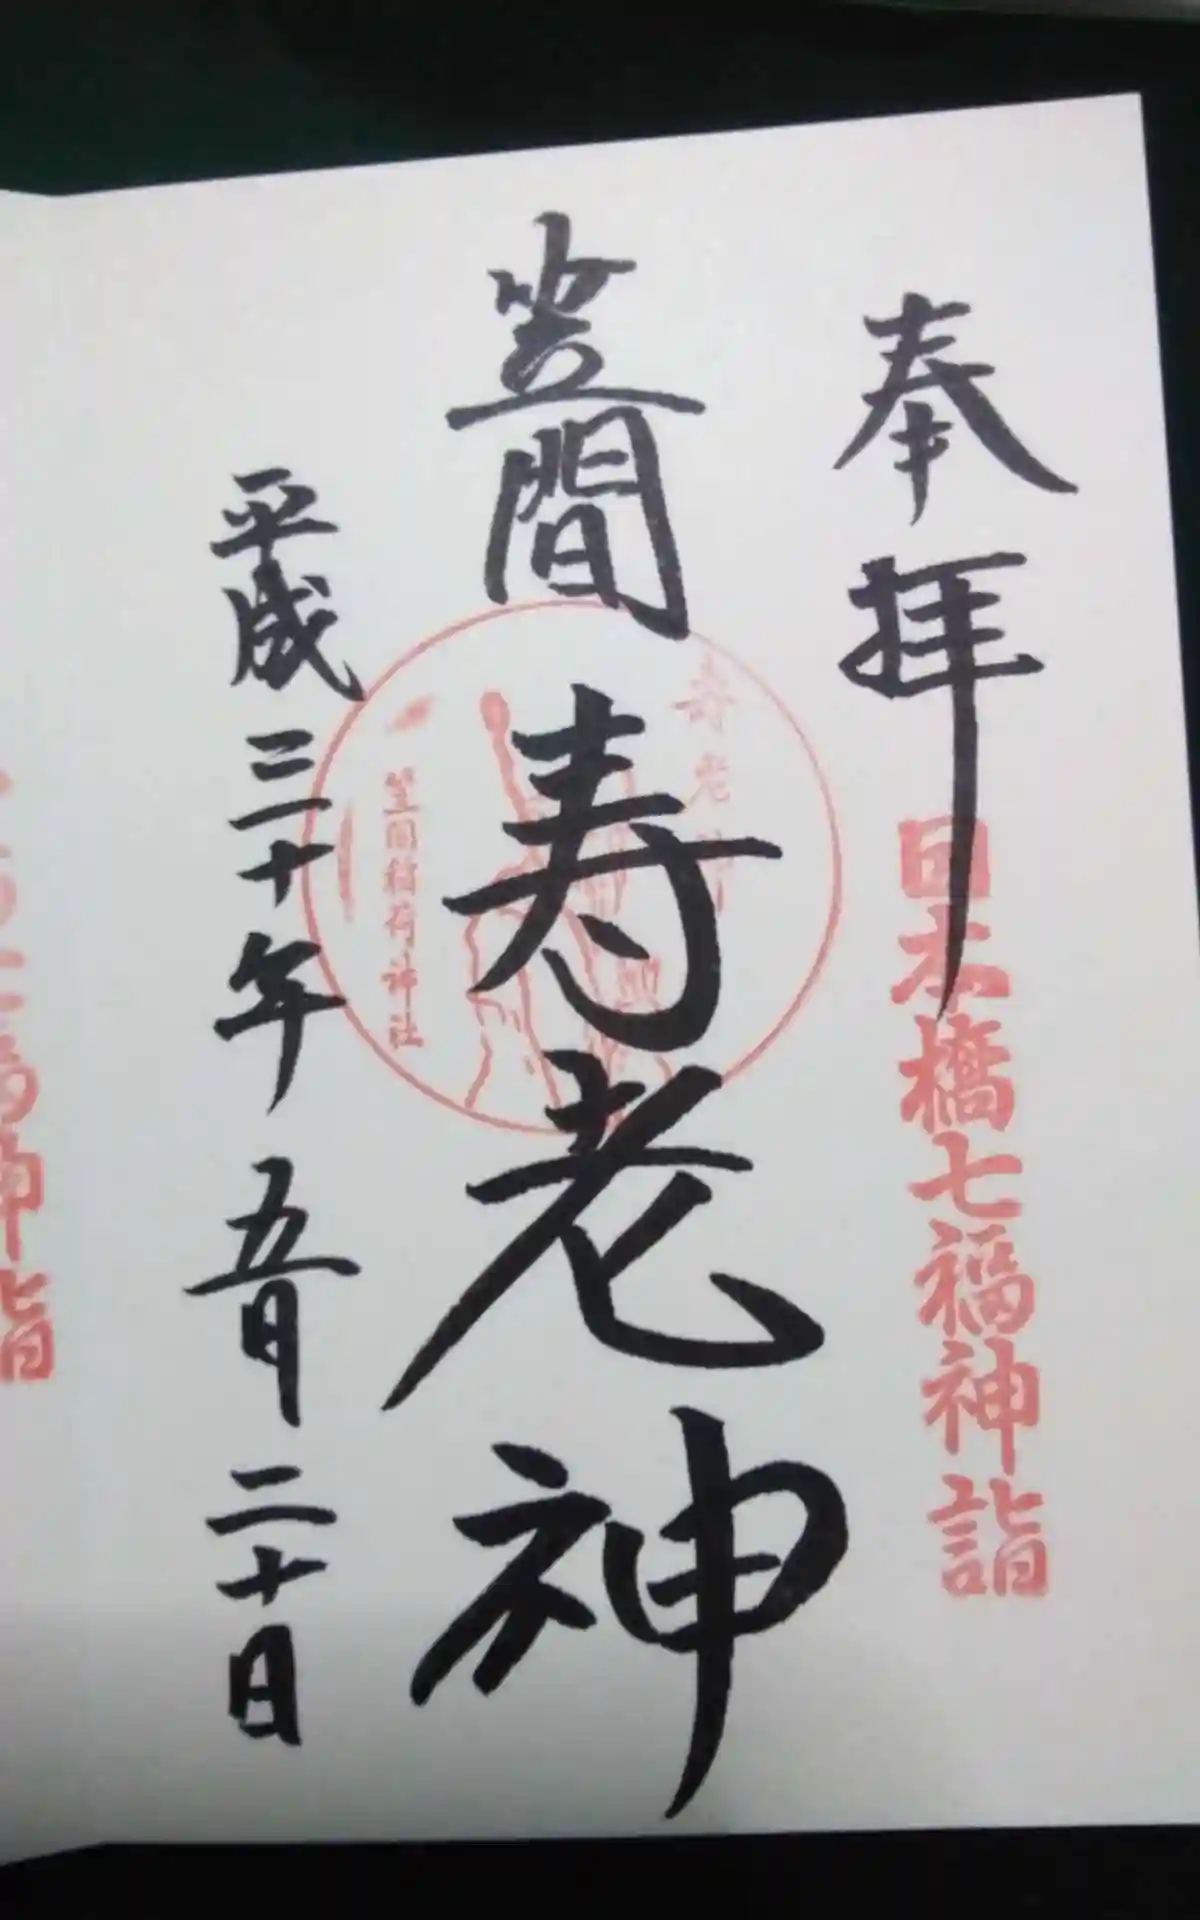 奉拝
日本橋七福神詣
笠間
寿老神
寿老神
笠間稲荷神社
平成三十年五月二十日
福神詣